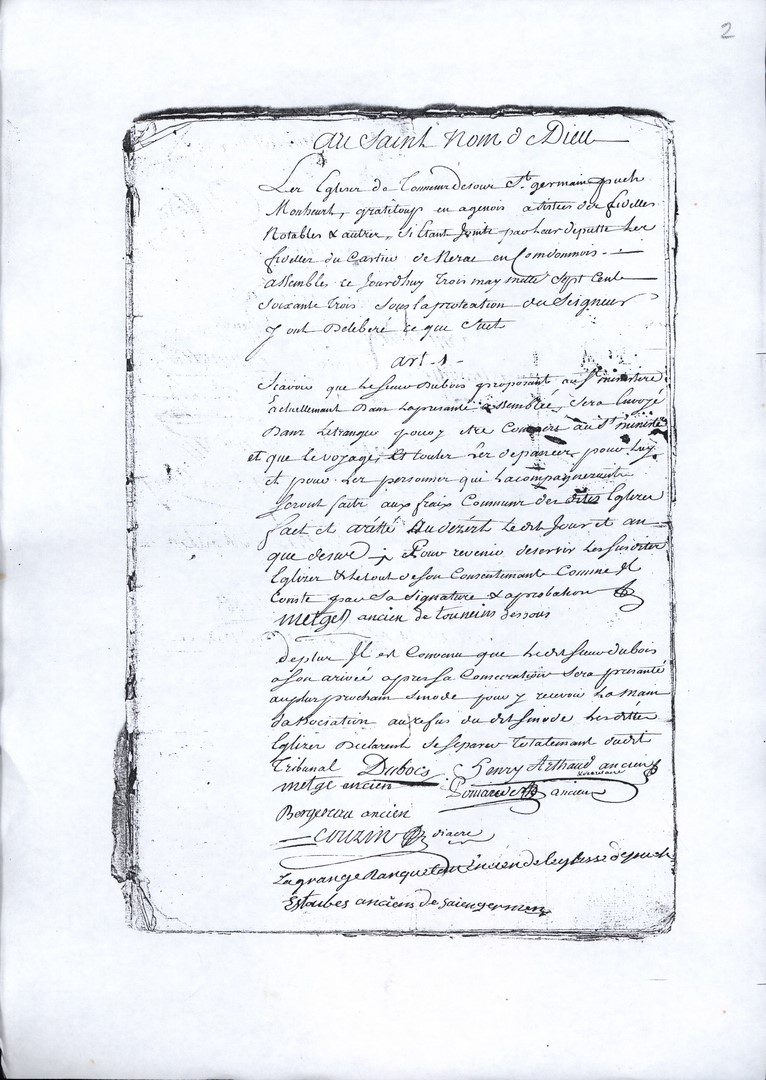 2
au Saint nom de Dieu
Les Eglizes de Tonneins desous St germain puch
Monheurt, gratiloup en agenois assistées des fidelles
Notables & autres, si Etant Jointe par leur depütte les
fidelles du Cartier de Nerac en Comdommois
assembles ce jourdhuy Trois may mille Sept Cent
Soixante Trois sous la protection du Seigneur
y ont Deliberé ce que suit
art. 1
Scavoir que le sieur Dubois proposant au St ministere
Ectuellemant Dans la presante assemblée, sera Envoyé
Dans L'etranger pour y etre Consacré au St ministe
et que le voyage, et toutes Les depances pour luy
et pour Les personnes qui L'acompagneronts
Seront faite aux fraix Communs des dites Eglizes
fact et arétté Au dezért le dit Jour et an
que desus Pour revenir deservir les susdites
Eglizes & le tout de son Consentemant Comme Il
Conste par Sa Signature & aprobation
metge ancien de touneins desous
deplus Il est Convenu que Le dit sieur dubois
a son arivée apres sa Consecration sera presanté
au plus prochain sinode pour y recevoir La main
dassociation au refus du dit sinode Les dittes
Eglizes Declarent se separer Totalemant du dit
Tribunal Dubocs Henry Arthaud ancien
secretaire
metge ancien ancien
Bergereau ancien
couzin diacre
Lagrange Ranquet ancien de leglisse de puch
Estoubes anciens de saiengermen